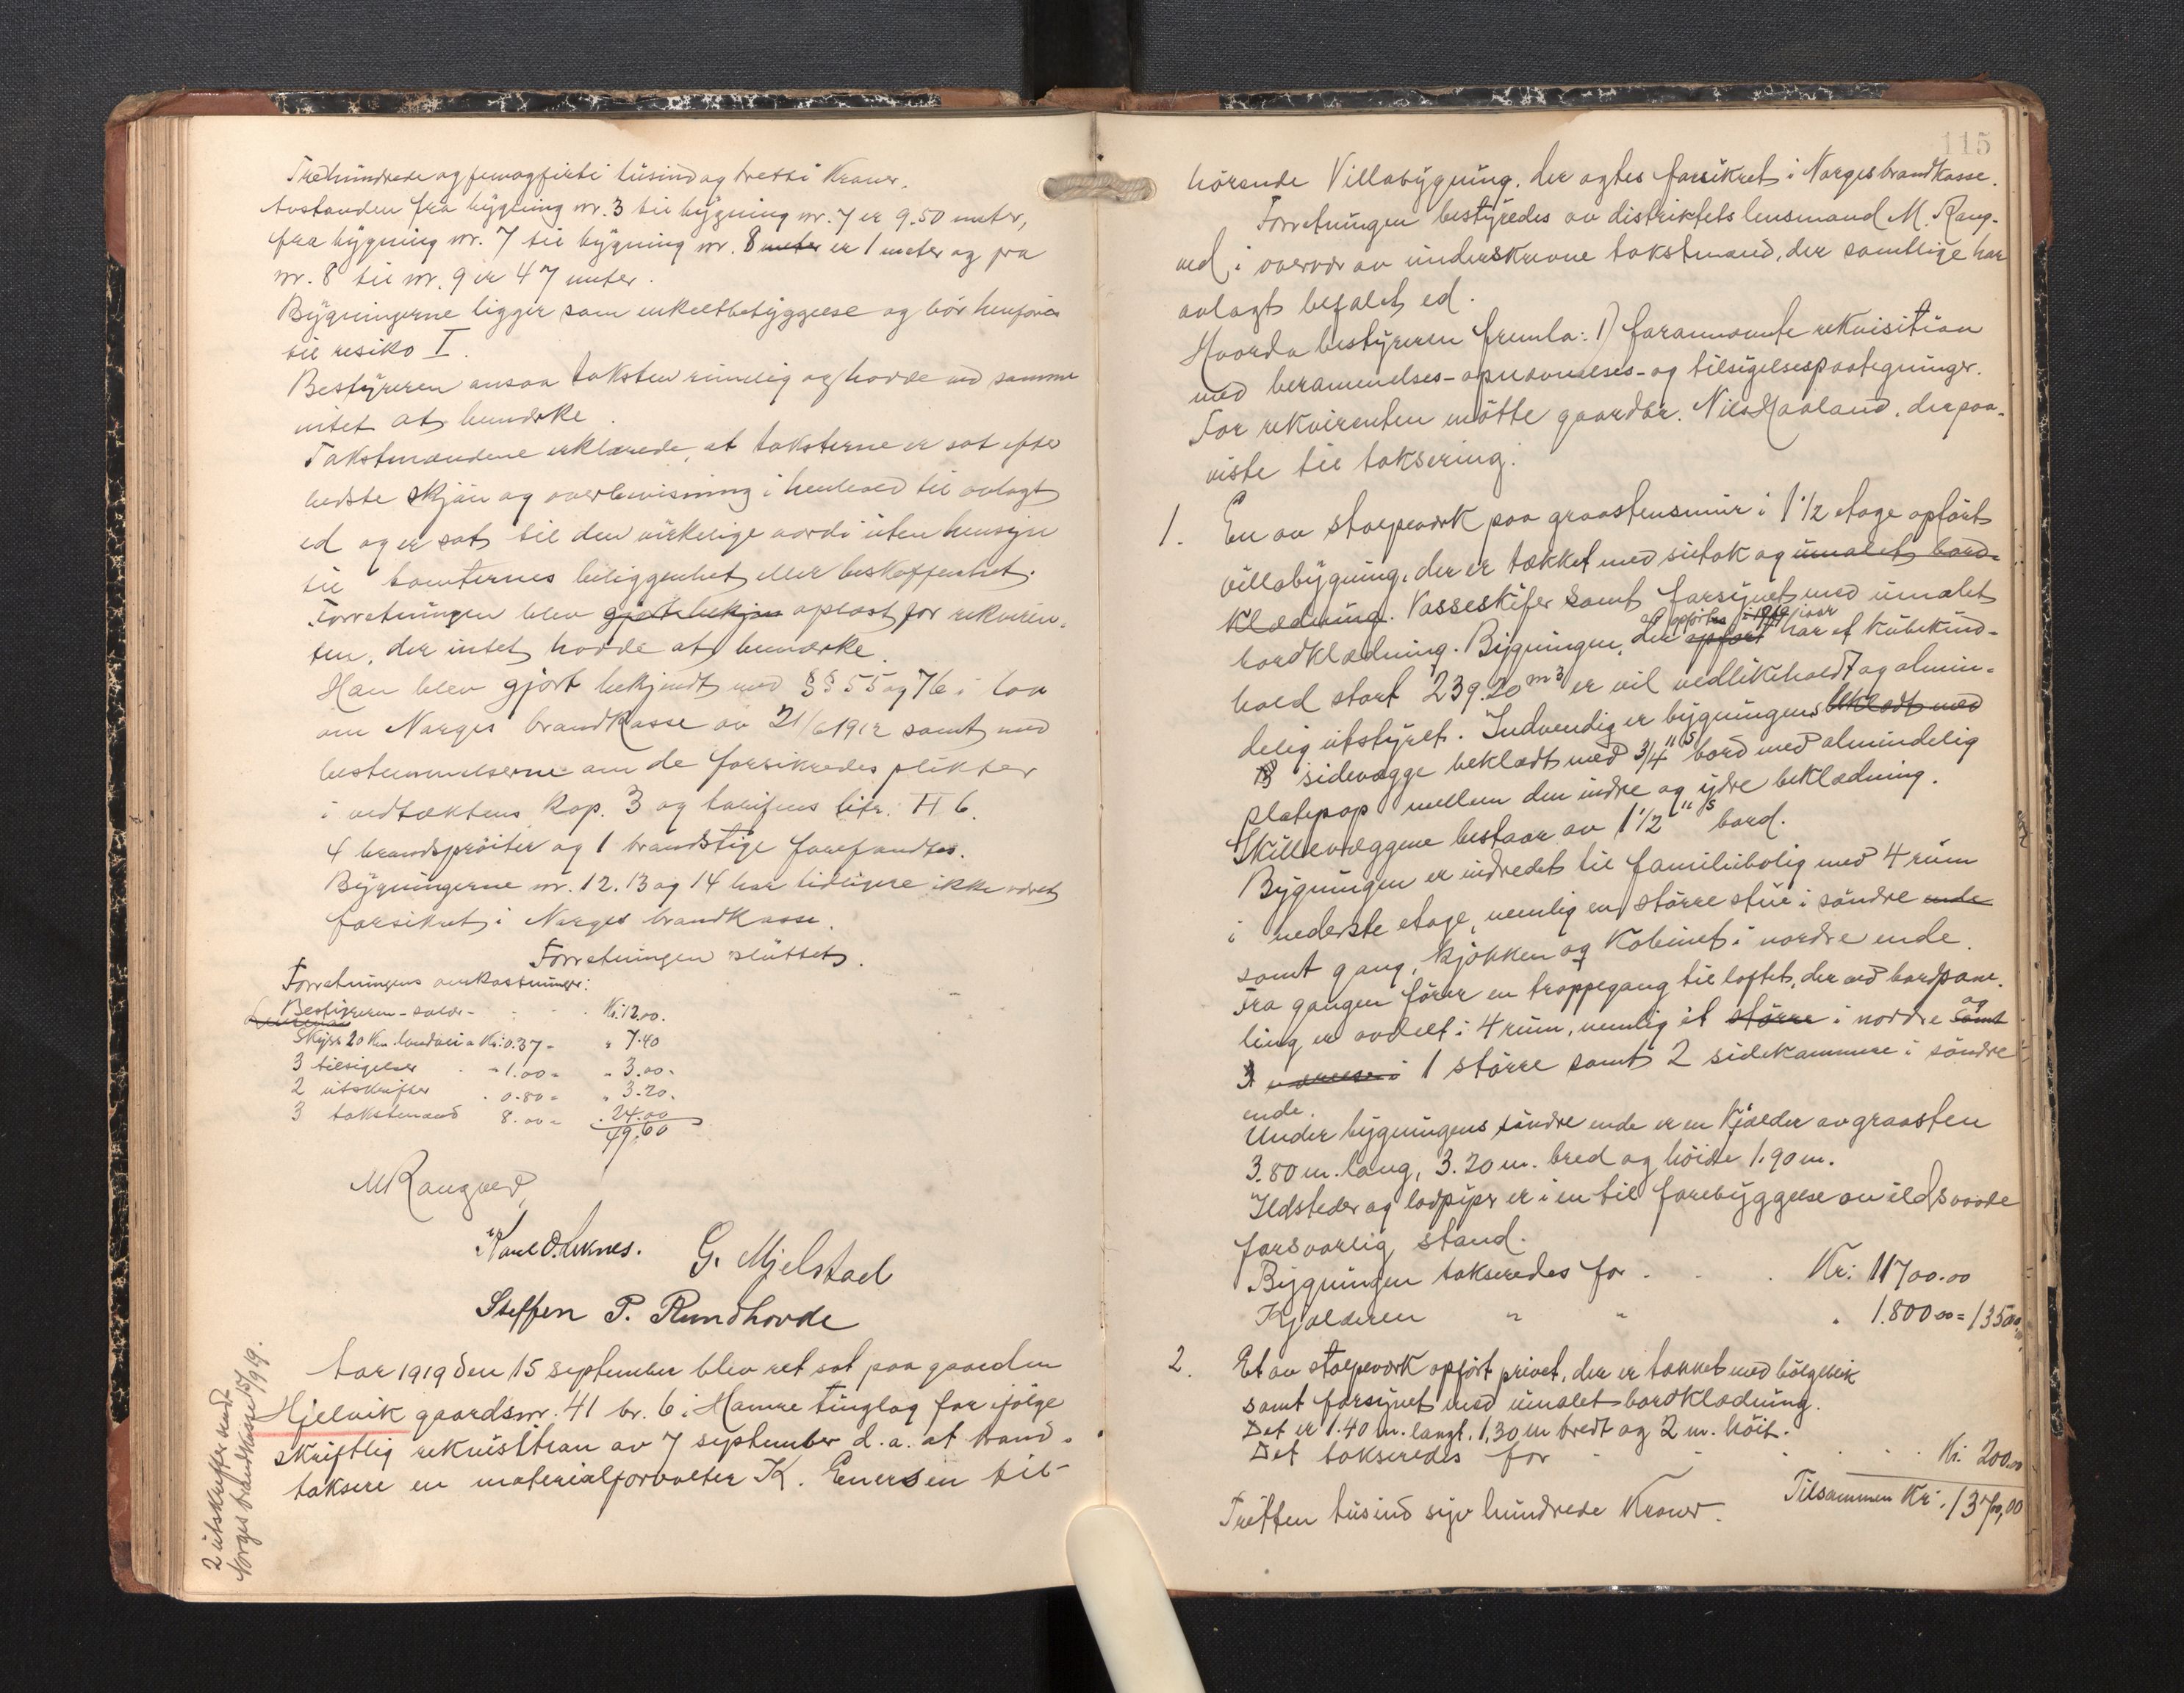 Trehundrede og femogfirti tusind og tretti Kroner.
Avstanden fra bygning nr. 3 til bygning nr. 7 er 9.50 meter,
fra bygning nr. 7 til bygning nr. 8 meter er 1 meter og fra
nr. 8 til nr. 9 er 47 meter.
Bygningerne ligger som enkeltbebyggelse og bör henföres
til resiko I.
Bestyreren ansaa taksten rimelig og hadde ved samme
intet at bemærke.
Takstmændene erklærede, at taksterne er sat efter
bedste skjön og overbevisning i henhold til avlagt
ed og er sat til den virkelige værdi uten hensyn
til tomternes beliggenhet eller beskaffenhet.
Forretningen blev gjort bekjen oplæst for rekviren-
ten, der intet hadde at bemærke.
Han blev gjort bekjendt med §§ 55 og 76 i lov
om Norges brandkasse av 21/6 1912 samt med
bestemmelserne om de forsikredes plikter
i vedtæktens kap. 3 og tarifens litr. H 6.
4 brandspröiter og 1 brandstige forefandtes.
Bygningerne nr. 12. 13 og 14 har tidligere ikke været
forsikret i Norges brandkasse.
Forretningen sluttet.
Forretningens omkostninger:
Bestyreren - salær - Kr. 12.00.
Skyss 20 km. landvei a Kr. 0.37 = " 7.40
3 tilsigelser " 1.00 = " 3.00.
2 utskrifter " 0.80 = " 3.20.
3 takstmænd 8.00 = " 24.00
49.60
M Rangved,
Karl O. Leknes. G. Mjelstad
Steffen P. Rundhovde
Aar 1919 den 15 september blev ret sat paa gaarden
Hjelvik gaardsnr. 41 br. 6 i Hamre tinglag for ifölge
skriftlig rekvisition av 7 september d. a. at brand-
taksere en materialforvalter K. Enersen til-
2 utskrifter sendt
Norges brandkasse 15/9 1919.
115
hörende Villabygning. der agtes forsikret i Norges brandkasse.
Forretningen bestyredes av distriktets lensmand M. Rang-
ved i overvær av underskrevne takstmænd, der samtlige har
avlagt befalet ed.
Hvorda bestyreren fremla: 1) forannævnte rekvisition
med berammelses- opnævnelses- og tilsigelsespaategninger.
For rekvirenten mötte gaardbr. Nils Haaland, der paa-
viste til taksering.
1. En av stolpeværk paa graastensmur i 1 1/2 etage opfört
villabygning, der er tækket med sutak og umalet bord-
klædning. Vosseskifer samt forsynet med umalet
bordklædning. Bygningen, der opfört er opförtes i 1919 iaar har et kubikind-
hold stort 239.20 m3 er vel vedlikeholdt og almin-
delig utstyret. Indvendig er bygningens beklædt med
sidevægge beklædt med 3/4"s bord med almindelig
platepap mellem den indre og ydre beklædning.
Skillevæggene bestaar av 1 1/2"s bord.
Bygningen er indredet til familiebolig med 4 rum
i nederste etage, nemlig en större stue i söndre ende
samt gang, kjökken og kabinet i nordre ende.
Fra gangen förer en trappegang til loftet, der ved bordpane-
ling er avdelt i 4 rum, nemlig et större i nordre samt og
3 værelser i 1 större samt 2 sidekammere i söndre
ende.
Under bygningens söndre ende er en Kjælder av graasten
3.80 m. lang, 3.20 m. bred og höide 1.90 m.
Ildsteder og lodpiper er i en til forebyggelse av ildsvaade
forsvarlig stand.
Bygningen takseredes for . . . Kr. 11700.00
Kjælderen " " " 1.800 00 = 13500
2. Et av stolpeværk opfört privet, der er tækket med bölgeblik
samt forsynet med umalet bordklædning.
Det er 1.40 m. langt, 1,30 m bredt og 2 m. höit.
Det takseredes for - - . . . Kr. 200.00
Tilsammen Kr. 13700,00
Tretten tusind syv hundrede Kroner.